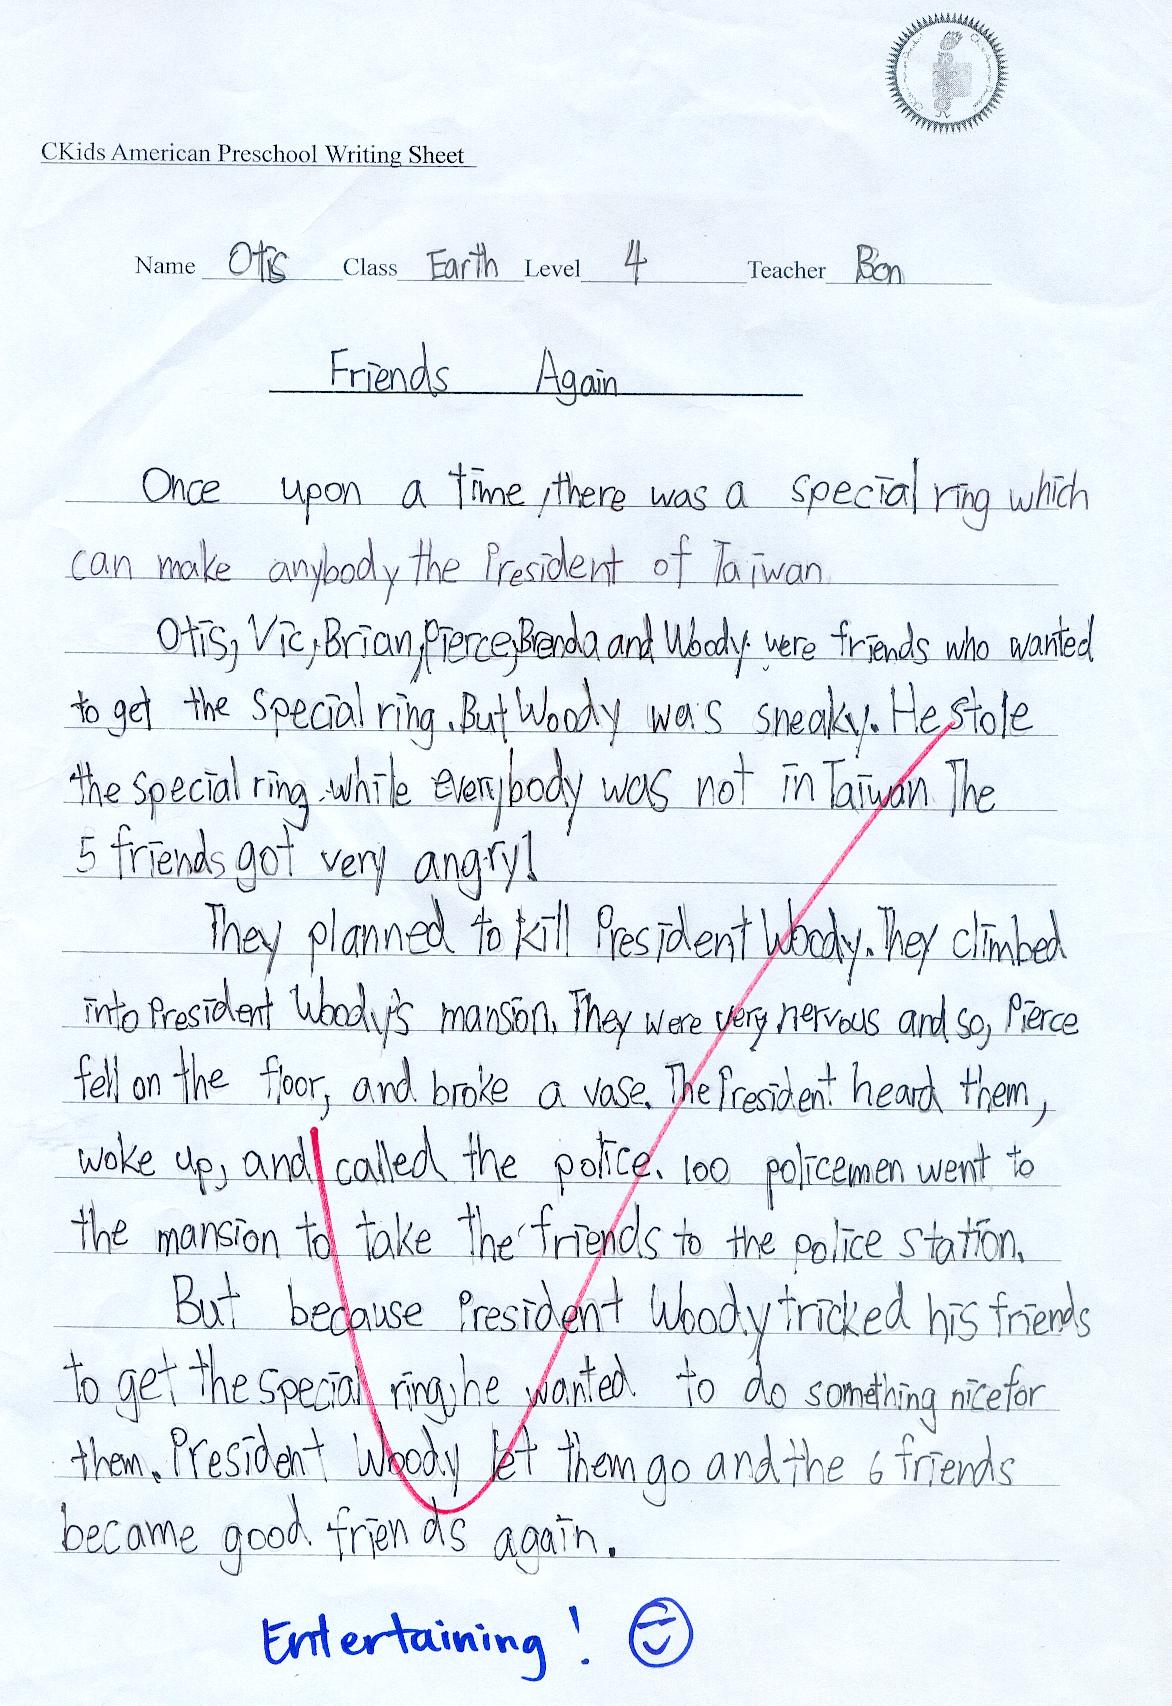 CKids American Preschool Writing Sheet
Name Otis Class Earth Level 4 Teacher Bon
Friends Again
Once upon a time, there was a special ring which
can make anybody the President of Taiwan.
Otis, Vic, Brian, Pierce, Brenda and Woody were friends who wanted
to get the special ring. But Woody was sneaky. He stole
the special ring while everybody was not in Taiwan. The
5 friends got very angry!
They planned to kill President Woody. They climbed
into President Woody's mansion. They were very nervous and so, Pierce
fell on the floor, and broke a vase. The President heard them,
woke up, and called the police. 100 policemen went to
the mansion to take the friends to the police station.
But because President Woody tricked his friends
to get the special ring, he wanted to do something nice for
them. President Woody let them go and the 6 friends
became good friends again.
Entertaining!